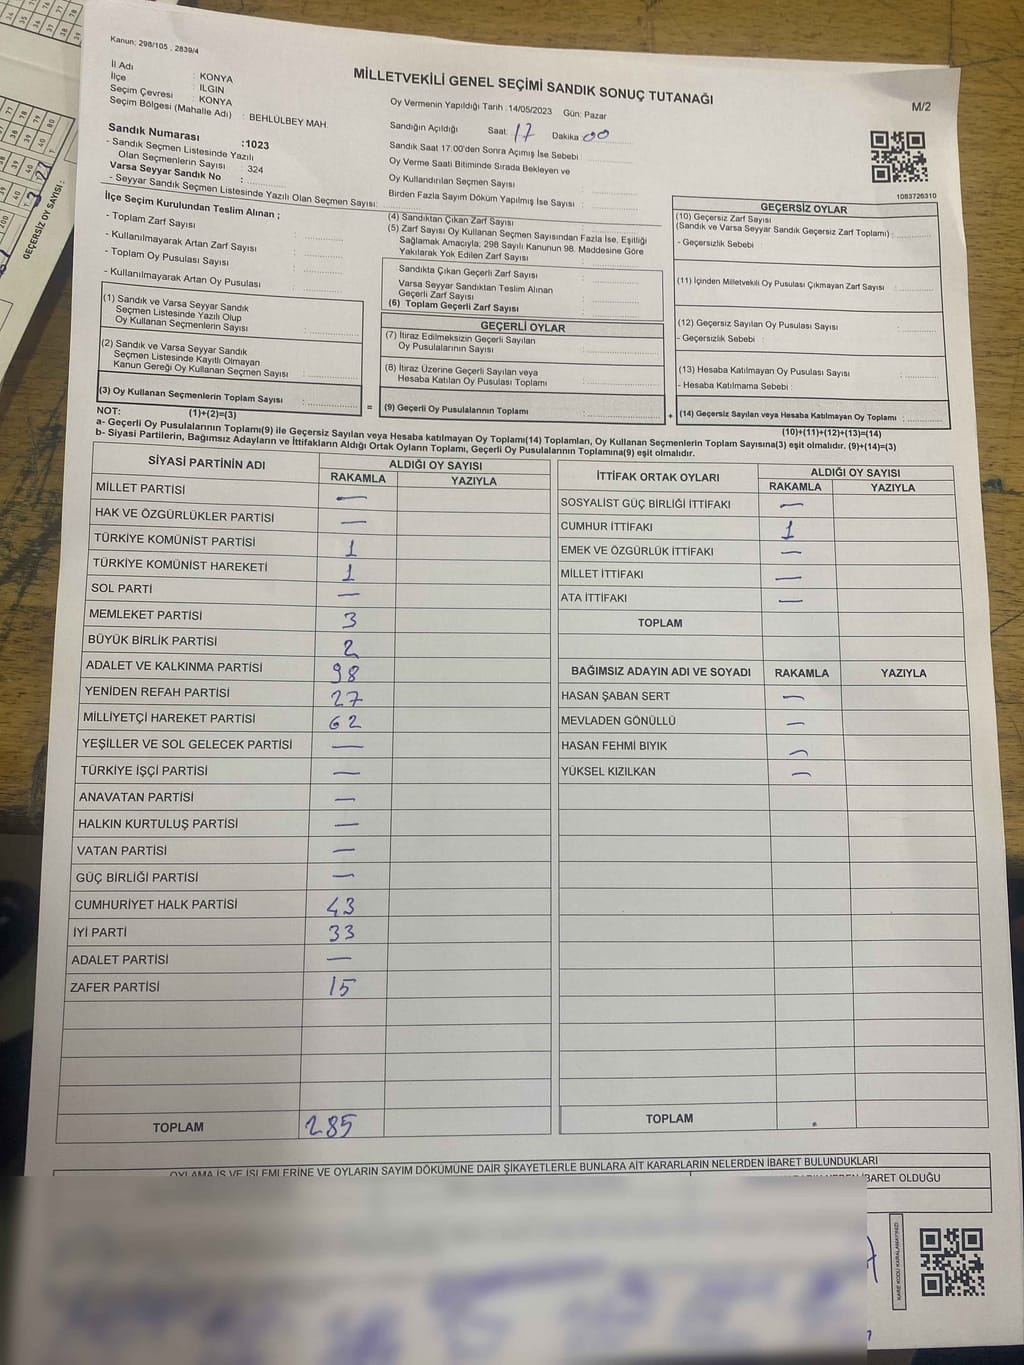 Kanun: 298/105 , 2839/4
MİLLETVEKİLİ GENEL SEÇİMİ SANDIK SONUÇ TUTANAĞI
M/2
İl Adı : KONYA
İlçe : ILGIN
Seçim Çevresi : KONYA
Seçim Bölgesi (Mahalle Adı) : BEHLÜLBEY MAH.
Sandık Numarası :1023
- Sandık Seçmen Listesinde Yazılı
Olan Seçmenlerin Sayısı : 324
Varsa Seyyar Sandık No :
- Seyyar Sandık Seçmen Listesinde Yazılı Olan Seçmen Sayısı:
Oy Vermenin Yapıldığı Tarih :14/05/2023 Gün: Pazar
Sandığın Açıldığı Saat: 17 Dakika 00
Sandık Saat 17:00'den Sonra Açımış İse Sebebi :
Oy Verme Saati Bitiminde Sırada Bekleyen ve
Oy Kullandırılan Seçmen Sayısı :
Birden Fazla Sayım Döküm Yapılmış İse Sayısı :
1083726310
İlçe Seçim Kurulundan Teslim Alınan ;
- Toplam Zarf Sayısı :
- Kullanılmayarak Artan Zarf Sayısı :
- Toplam Oy Pusulası Sayısı :
- Kullanılmayarak Artan Oy Pusulası :
(1) Sandık ve Varsa Seyyar Sandık
Seçmen Listesinde Yazılı Olup
Oy Kullanan Seçmenlerin Sayısı :
(2) Sandık ve Varsa Seyyar Sandık
Seçmen Listesinde Kayıtlı Olmayan
Kanun Gereği Oy Kullanan Seçmen Sayısı :
(3) Oy Kullanan Seçmenlerin Toplam Sayısı :
(1)+(2)=(3)
(4) Sandıktan Çıkan Zarf Sayısı :
(5) Zarf Sayısı Oy Kullanan Seçmen Sayısından Fazla İse, Eşitliği
Sağlamak Amacıyla; 298 Sayılı Kanunun 98. Maddesine Göre
Yakılarak Yok Edilen Zarf Sayısı :
Sandıkta Çıkan Geçerli Zarf Sayısı :
Varsa Seyyar Sandıktan Teslim Alınan
Geçerli Zarf Sayısı :
(6) Toplam Geçerli Zarf Sayısı :
GEÇERLİ OYLAR
(7) İtiraz Edilmeksizin Geçerli Sayılan
Oy Pusulalarının Sayısı :
(8) İtiraz Üzerine Geçerli Sayılan veya
Hesaba Katılan Oy Pusulası Toplamı :
= (9) Geçerli Oy Pusulalarının Toplamı :
GEÇERSİZ OYLAR
(10) Geçersiz Zarf Sayısı
(Sandık ve Varsa Seyyar Sandık Geçersiz Zarf Toplamı) :
- Geçersizlik Sebebi :
(11) İçinden Milletvekili Oy Pusulası Çıkmayan Zarf Sayısı :
(12) Geçersiz Sayılan Oy Pusulası Sayısı :
- Geçersizlik Sebebi :
(13) Hesaba Katılmayan Oy Pusulası Sayısı :
- Hesaba Katılmama Sebebi :
+ (14) Geçersiz Sayılan veya Hesaba Katılmayan Oy Toplamı :
(10)+(11)+(12)+(13)=(14)
NOT:
a- Geçerli Oy Pusulalarının Toplamı(9) ile Geçersiz Sayılan veya Hesaba katılmayan Oy Toplamı(14) Toplamları, Oy Kullanan Seçmenlerin Toplam Sayısına(3) eşit olmalıdır. (9)+(14)=(3)
b- Siyasi Partilerin, Bağımsız Adayların ve İttifakların Aldığı Ortak Oyların Toplamı, Geçerli Oy Pusulalarının Toplamına(9) eşit olmalıdır.
SİYASİ PARTİNİN ADI ALDIĞI OY SAYISI
RAKAMLA YAZIYLA
MİLLET PARTİSİ —
HAK VE ÖZGÜRLÜKLER PARTİSİ —
TÜRKİYE KOMÜNİST PARTİSİ 1
TÜRKİYE KOMÜNİST HAREKETİ 1
SOL PARTİ —
MEMLEKET PARTİSİ 3
BÜYÜK BİRLİK PARTİSİ 2
ADALET VE KALKINMA PARTİSİ 98
YENİDEN REFAH PARTİSİ 27
MİLLİYETÇİ HAREKET PARTİSİ 62
YEŞİLLER VE SOL GELECEK PARTİSİ —
TÜRKİYE İŞÇİ PARTİSİ —
ANAVATAN PARTİSİ —
HALKIN KURTULUŞ PARTİSİ —
VATAN PARTİSİ —
GÜÇ BİRLİĞİ PARTİSİ —
CUMHURİYET HALK PARTİSİ 43
İYİ PARTİ 33
ADALET PARTİSİ —
ZAFER PARTİSİ 15
TOPLAM 285
İTTİFAK ORTAK OYLARI ALDIĞI OY SAYISI
RAKAMLA YAZIYLA
SOSYALİST GÜÇ BİRLİĞİ İTTİFAKI —
CUMHUR İTTİFAKI 1
EMEK VE ÖZGÜRLÜK İTTİFAKI —
MİLLET İTTİFAKI —
ATA İTTİFAKI —
TOPLAM
BAĞIMSIZ ADAYIN ADI VE SOYADI RAKAMLA YAZIYLA
HASAN ŞABAN SERT —
MEVLADEN GÖNÜLLÜ —
HASAN FEHMİ BIYIK —
YÜKSEL KIZILKAN —
TOPLAM
OYLAMA İŞ VE İŞLEMLERİNE VE OYLARIN SAYIM DÖKÜMÜNE DAİR ŞİKAYETLERLE BUNLARA AİT KARARLARIN NELERDEN İBARET BULUNDUKLARI
İBARET OLDUĞU
KARE KODU KARALAMAYINIZ!
GEÇERSİZ OY SAYISI :